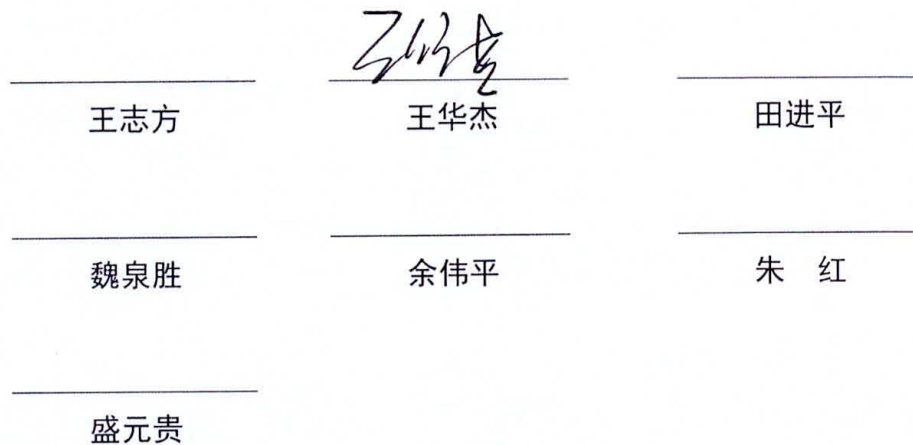 王志方 王华杰 田进平
魏泉胜 余伟平 朱 红
盛元贵